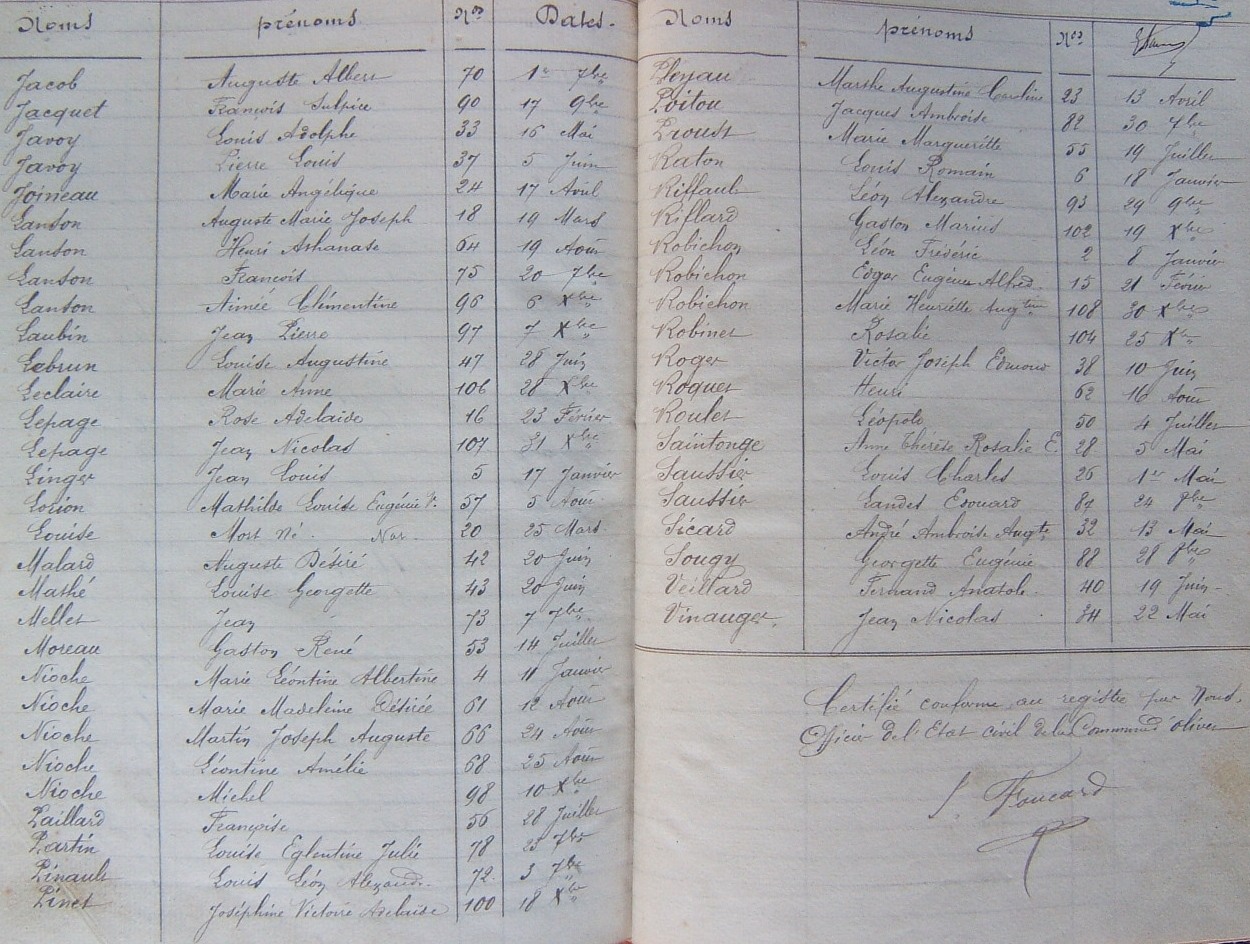 Noms prénoms Nos Dates.
Jacob Auguste Albert 70 1er 7bre
Jacquet François Sulpice 90 17 9bre
Javoy Louis Adolphe 33 16 Mai
Javoy Pierre Louis 37 5 Juin
Joineau Marie Angélique 24 17 Avril
Lanson Auguste Marie Joseph 18 19 Mars
Lanson Henri Athanase 64 19 Août
Lanson François 75 20 7bre
Lanson Aimée Clémentine 96 6 Xbre
Laubin Jean Pierre 97 7 Xbre
Lebrun Louise Augustine 47 28 Juin
Leclaire Marie Anne 106 28 Xbre
Lepage Rose Adelaide 16 23 Février
Lepage Jean Nicolas 107 31 Xbre
Linger Jean Louis 5 17 Janvier
Lorion Mathilde Louise Eugénie V. 57 5 Août
Louise Mort Né. 20 25 Mars
Malard Auguste Désiré 42 20 Juin
Mathé Louise Georgette 43 20 Juin
Mellet Jean 73 7 7bre
Moreau Gaston René 53 14 Juillet
Nioche Marie Léontine Albertine 4 11 Janvier
Nioche Marie Madeleine Désirée 61 12 Août
Nioche Martin Joseph Auguste 66 24 Août
Nioche Léontine Amélie 68 25 Août
Nioche Michel 98 10 Xbre
Paillard Françoise 56 28 Juillet
Partin Louise Eglentine Julie 78 23 7bre
Pinault Louis Léon Alexandr. 72 3 7bre
Pinet Joséphine Victoire Adelaide 100 18 Xbre
Noms prénoms Nos
Ployau Marthe Augustine Caroline 23 13 Avril
Poitou Jacques Ambroise 82 30 7bre
Proust Marie Marguerite 55 19 Juillet
Raton Louis Romain 6 18 Janvier
Riffault Léon Alexandre 93 29 9bre
Riflard Gaston Marius 102 19 Xbre
Robichon Léon Frédéric 2 8 Janvier
Robichon Edgar Eugène Alfred 15 21 Février
Robichon Marie Henriette Augtine 108 30 Xbre
Robinet Rosalie 104 25 Xbre
Roger Victor Joseph Edmond 38 10 Juin
Roquet Henri 62 16 Août
Roulet Léopold 50 4 Juillet
Saintonge Anne Thérèse Rosalie E. 28 5 Mai
Saussier Louis Charles 26 1er Mai
Saussier Landes Edouard 87 24 8bre
Sicard André Ambroise Augte 32 13 Mai
Sougy Georgette Eugénie 88 28 8bre
Veillard Fernand Anatole 40 19 Juin
Vinauger Jean Nicolas 34 22 Mai
Certifié conforme au registre par Nous,
Officier de l'Etat civil de la Commune d'Olivet
Foucard